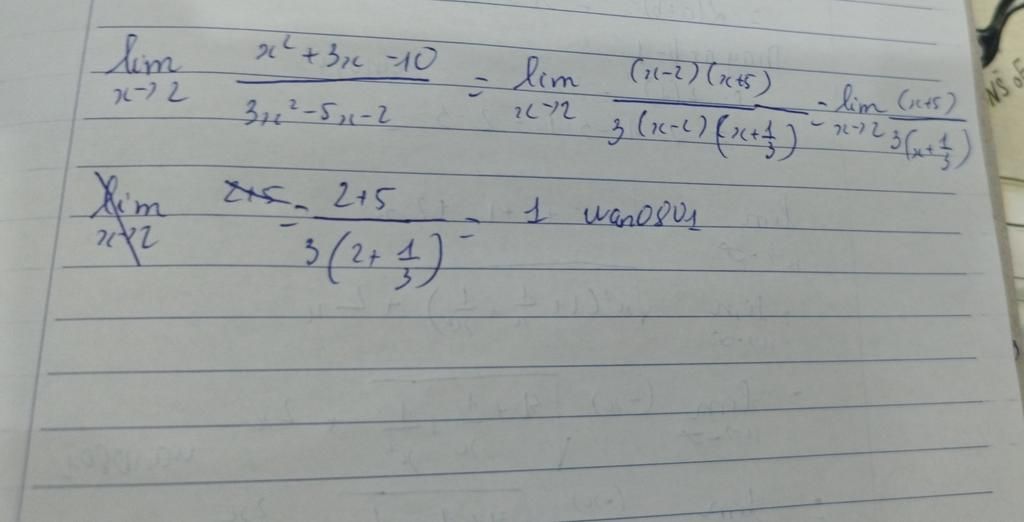 lim x→2 (x² + 3x - 10)/(3x² - 5x - 2) = lim x→2 ((x-2)(x+5))/(3(x-2)(x+1/3)) = lim x→2 (x+5)/(3(x+1/3))
lim x→2 2+5 = (2+5)/(3(2+1/3)) = 1 wan0801